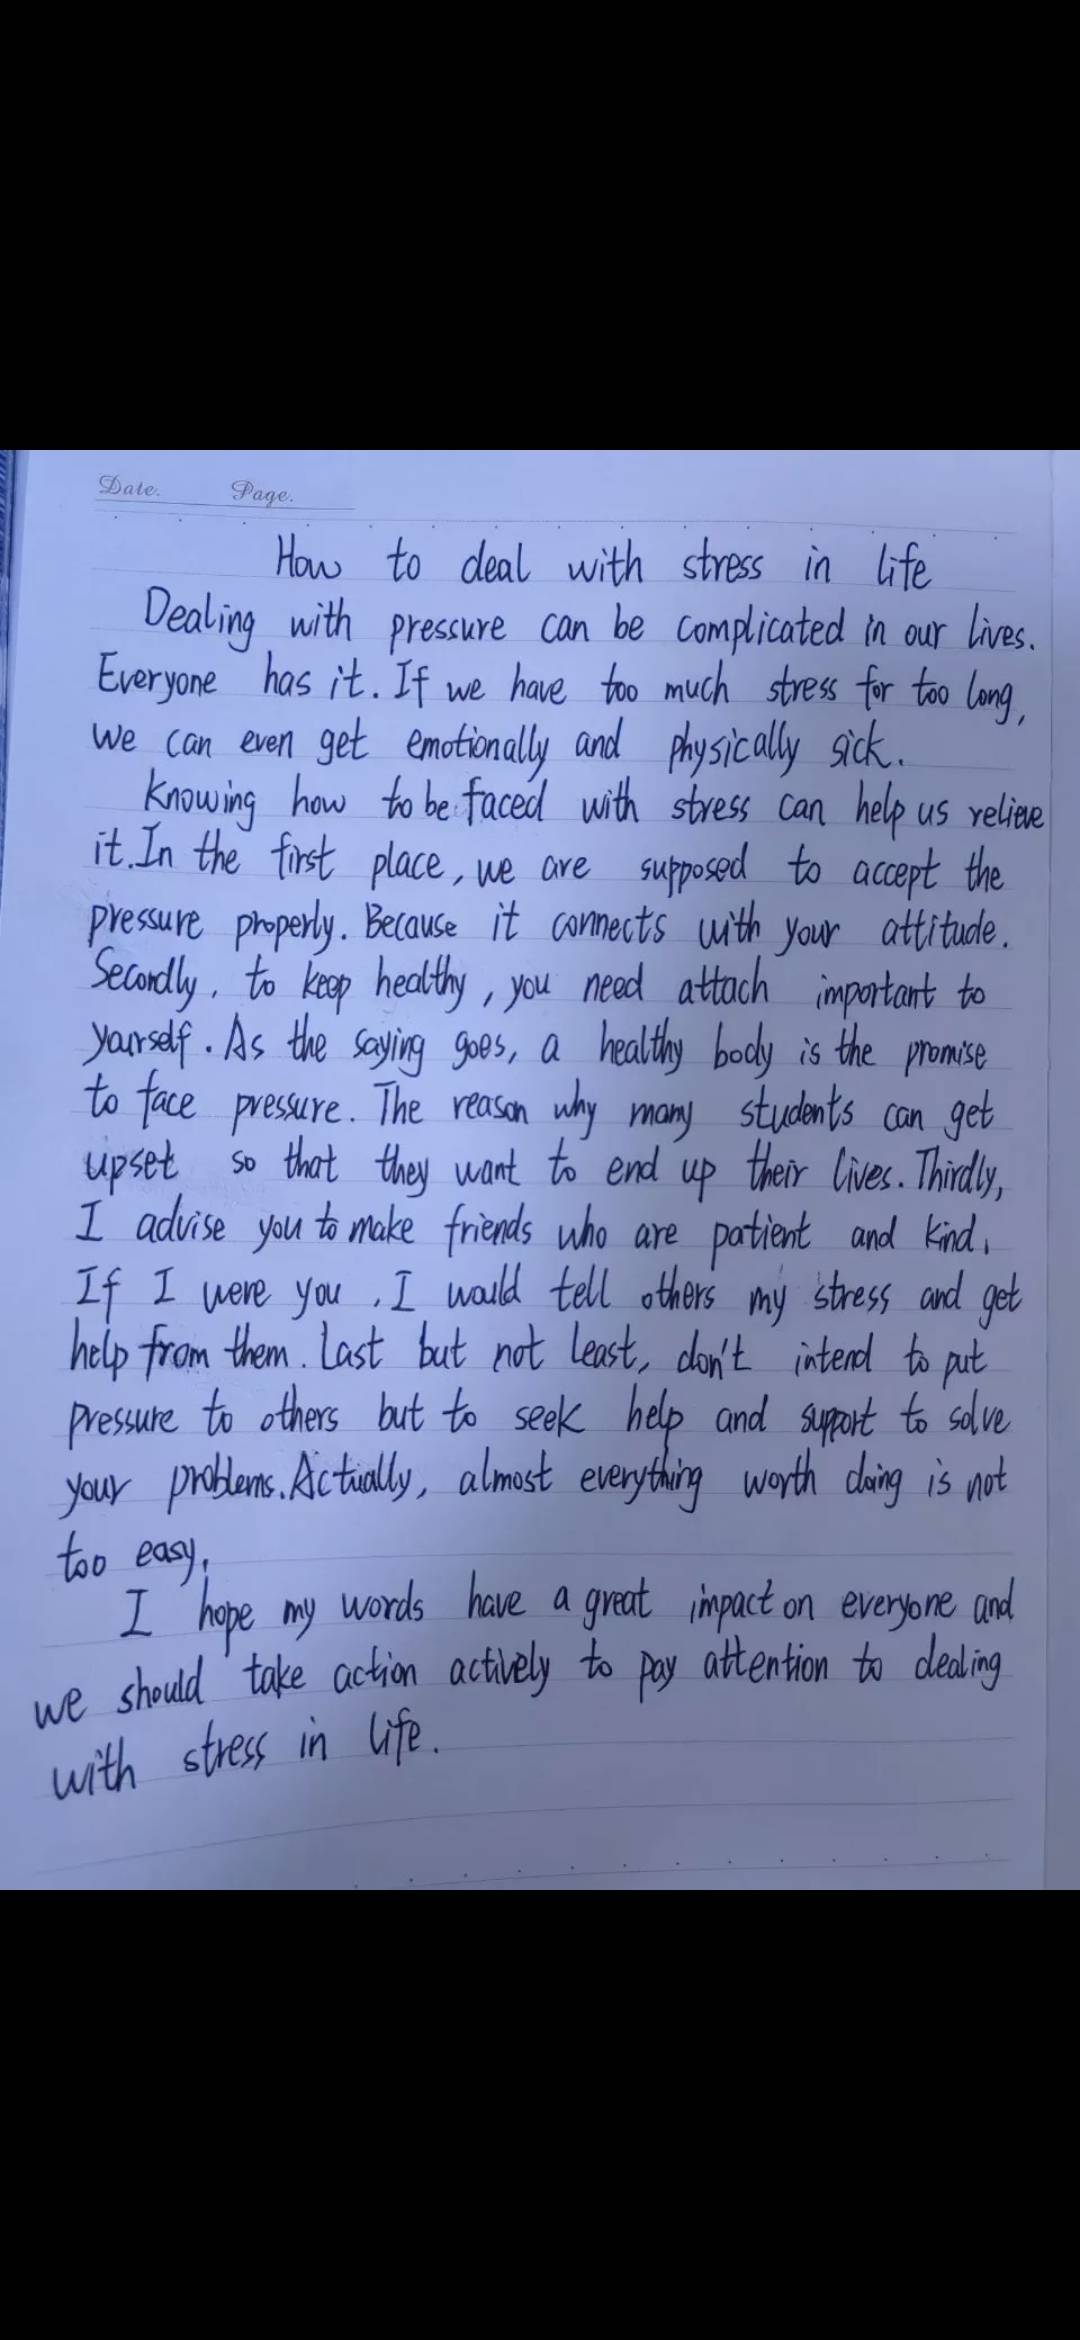 Date. Page.
How to deal with stress in life
Dealing with pressure can be complicated in our lives.
Everyone has it. If we have too much stress for too long,
we can even get emotionally and physically sick.
Knowing how to be faced with stress can help us relieve
it. In the first place, we are supposed to accept the
pressure properly. Because it connects with your attitude.
Secondly, to keep healthy, you need attach important to
yourself. As the saying goes, a healthy body is the promise
to face pressure. The reason why many students can get
upset so that they want to end up their lives. Thirdly,
I advise you to make friends who are patient and kind.
If I were you, I would tell others my stress and get
help from them. Last but not least, don't intend to put
pressure to others but to seek help and support to solve
your problems. Actually, almost everything worth doing is not
too easy.
I hope my words have a great impact on everyone and
we should take action actively to pay attention to dealing
with stress in life.